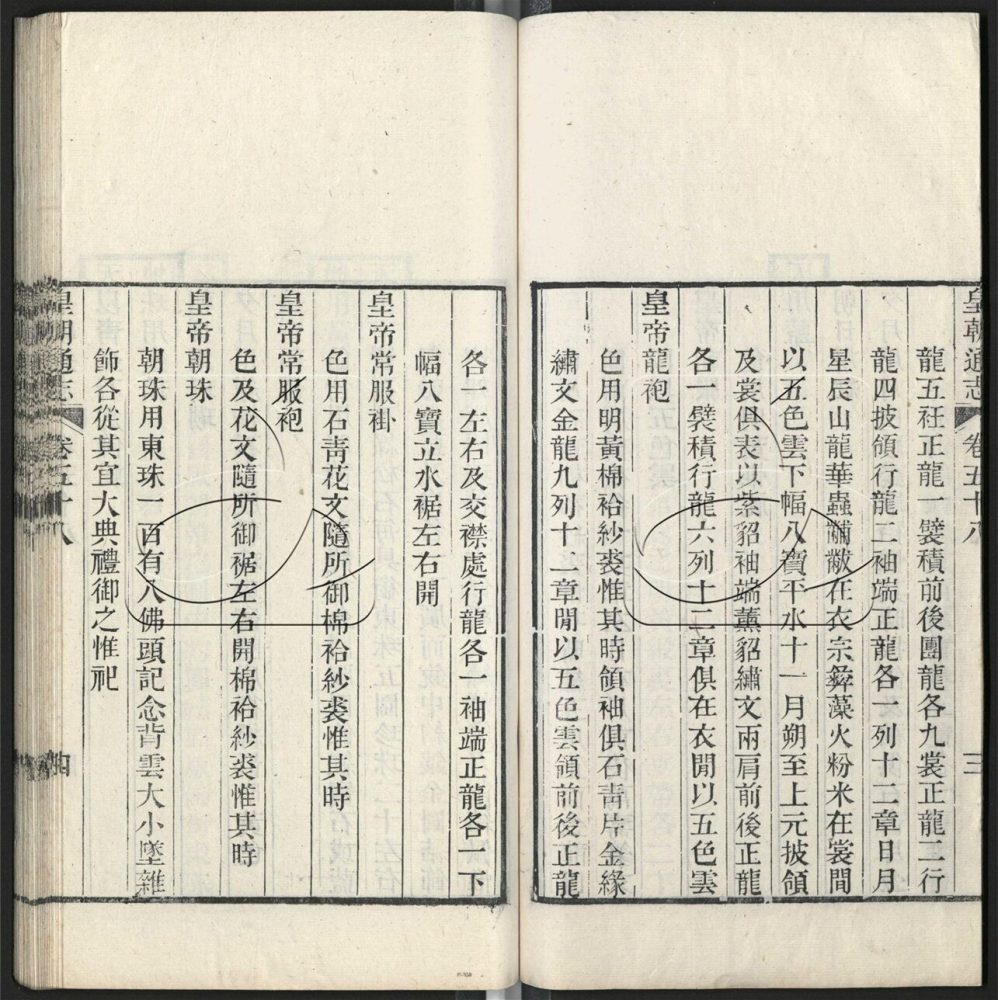 皇朝通志 卷五十八 三
龍五衽正龍一襞積前後團龍各九裳正龍二行
龍四披領行龍二袖端正龍各一列十二章日月
星辰山龍華蟲黼黻在衣宗彝藻火粉米在裳間
以五色雲下幅八寶平水十一月朔至上元披領
及裳俱表以紫貂袖端薰貂繡文兩肩前後正龍
各一襞積行龍六列十二章俱在衣間以五色雲
皇帝龍袍
色用明黃棉袷紗裘惟其時領袖俱石青片金緣
繡文金龍九列十二章間以五色雲領前後正龍
各一左右及交襟處行龍各一袖端正龍各一下
幅八寶立水裾左右開
皇帝常服褂
色用石青花文隨所御棉袷紗裘惟其時
皇帝常服袍
色及花文隨所御裾左右開棉袷紗裘惟其時
皇帝朝珠
朝珠用東珠一百有八佛頭記念背雲大小墜雜
飾各從其宜大典禮御之惟祀
皇朝通志 卷五十八 四